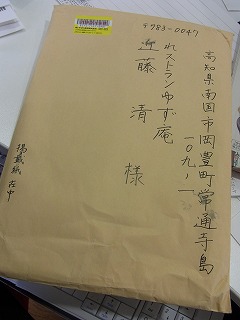 〒783-0047
高知県南国市岡豊町常通寺島
一〇九-一
れストランゆず庵
近藤 清 様
掲載紙在中